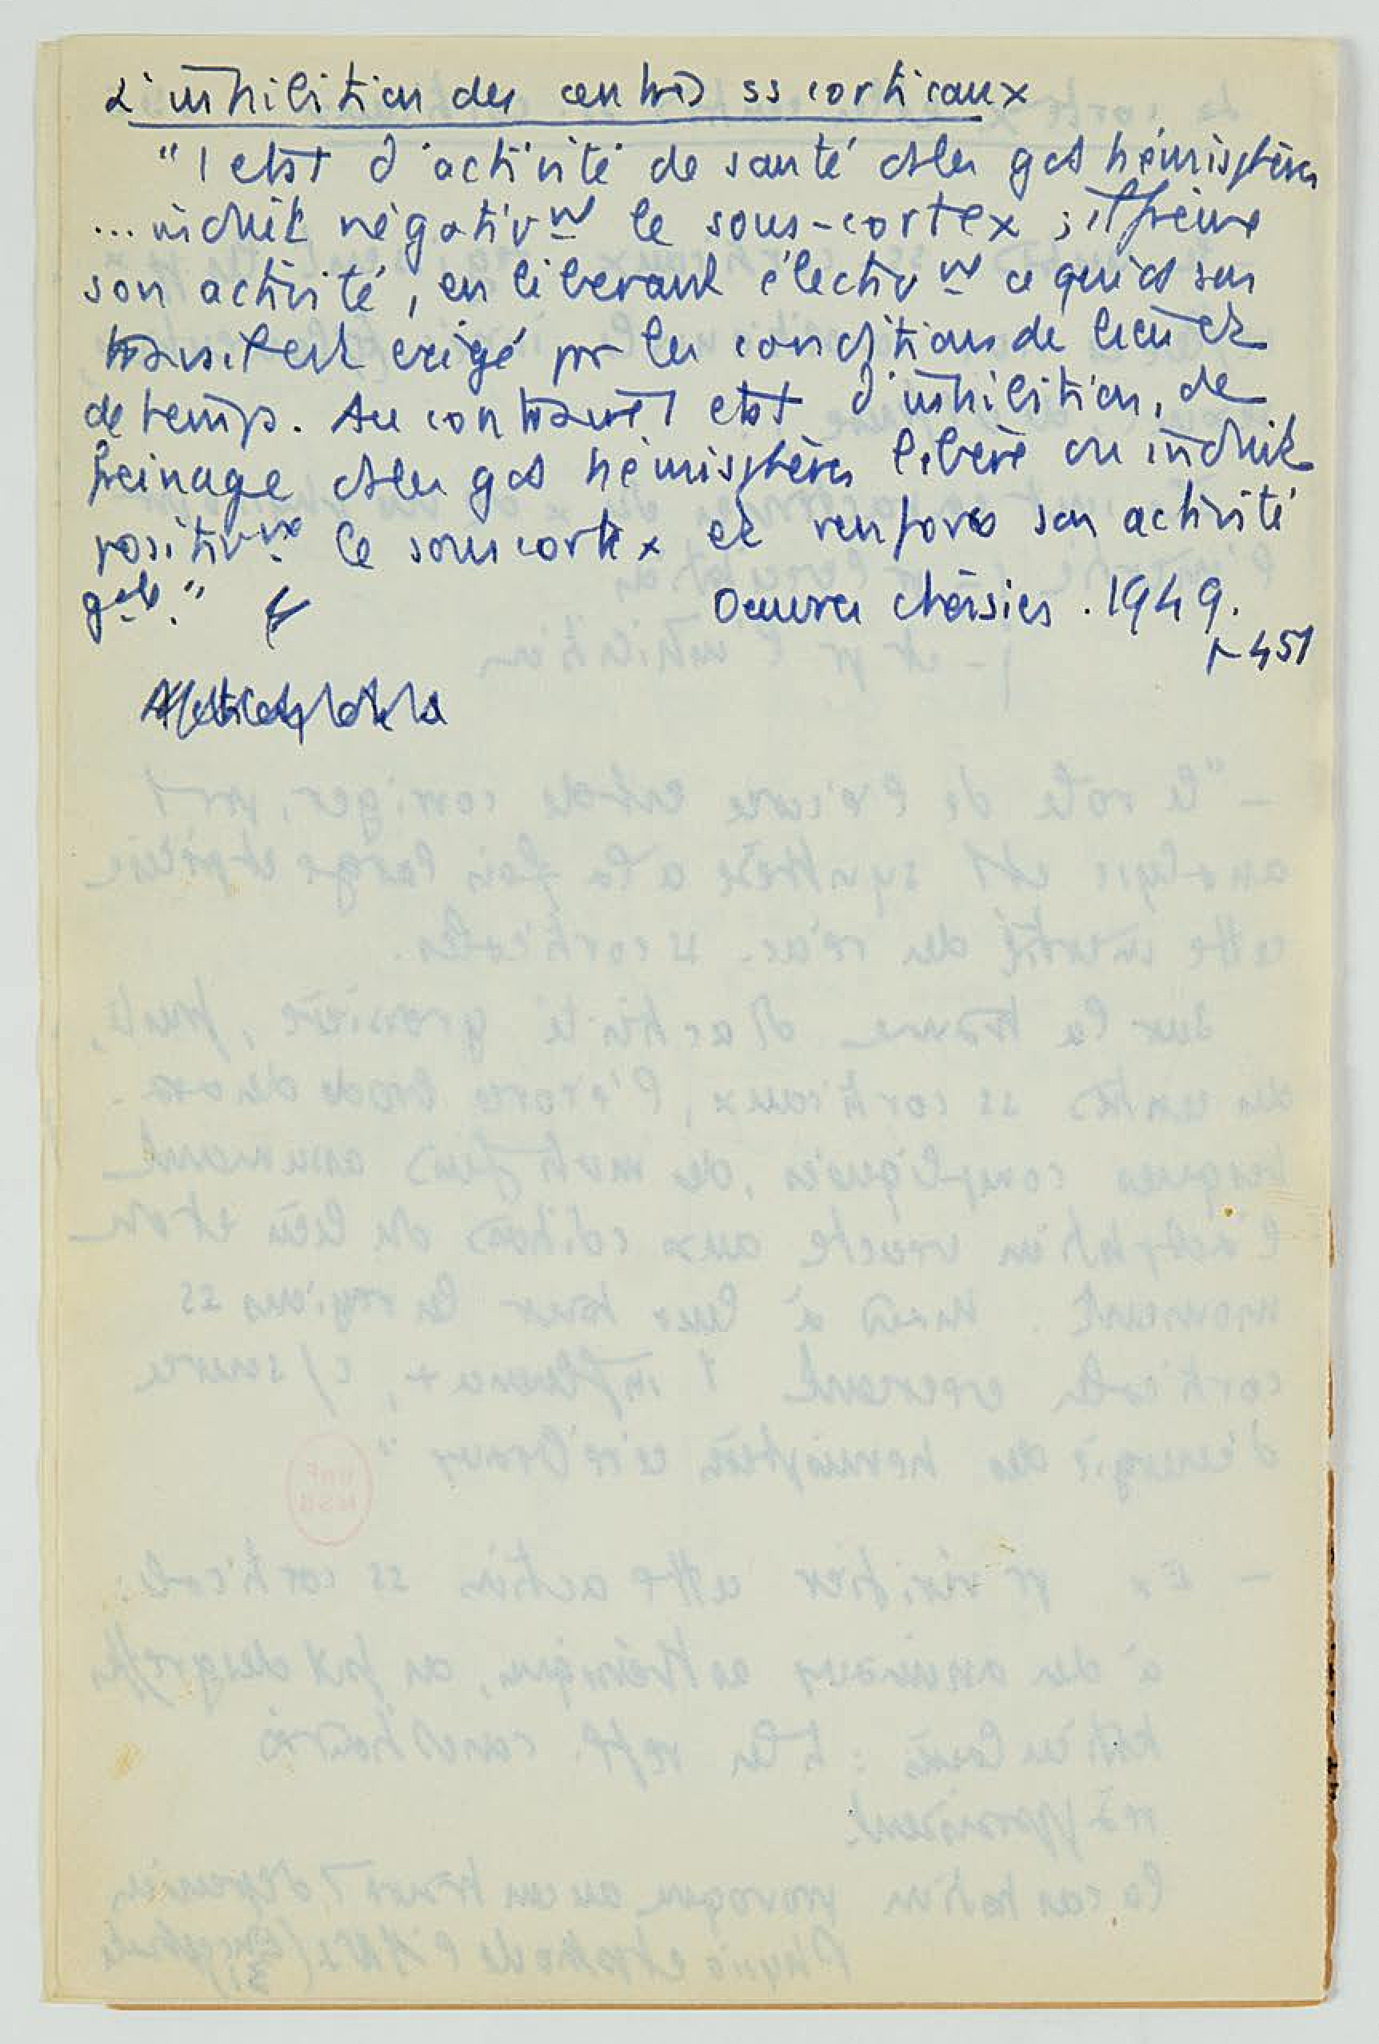 L'inhibition des centres ss corticaux
"1 etat d'activité de santé des gds hémisphères
... induit négativt le sous-cortex ; il freine
son activité, en liberant électivt ce qui ds son
travail est exigé par les conditions de lieu et
de temps. Au contraire 1 etat d'inhibition, de
freinage des gds hémisphères libère ou induit
positivt le sous cortex et renforce son activité
gale."
Oeuvres choisies. 1949.
p 451